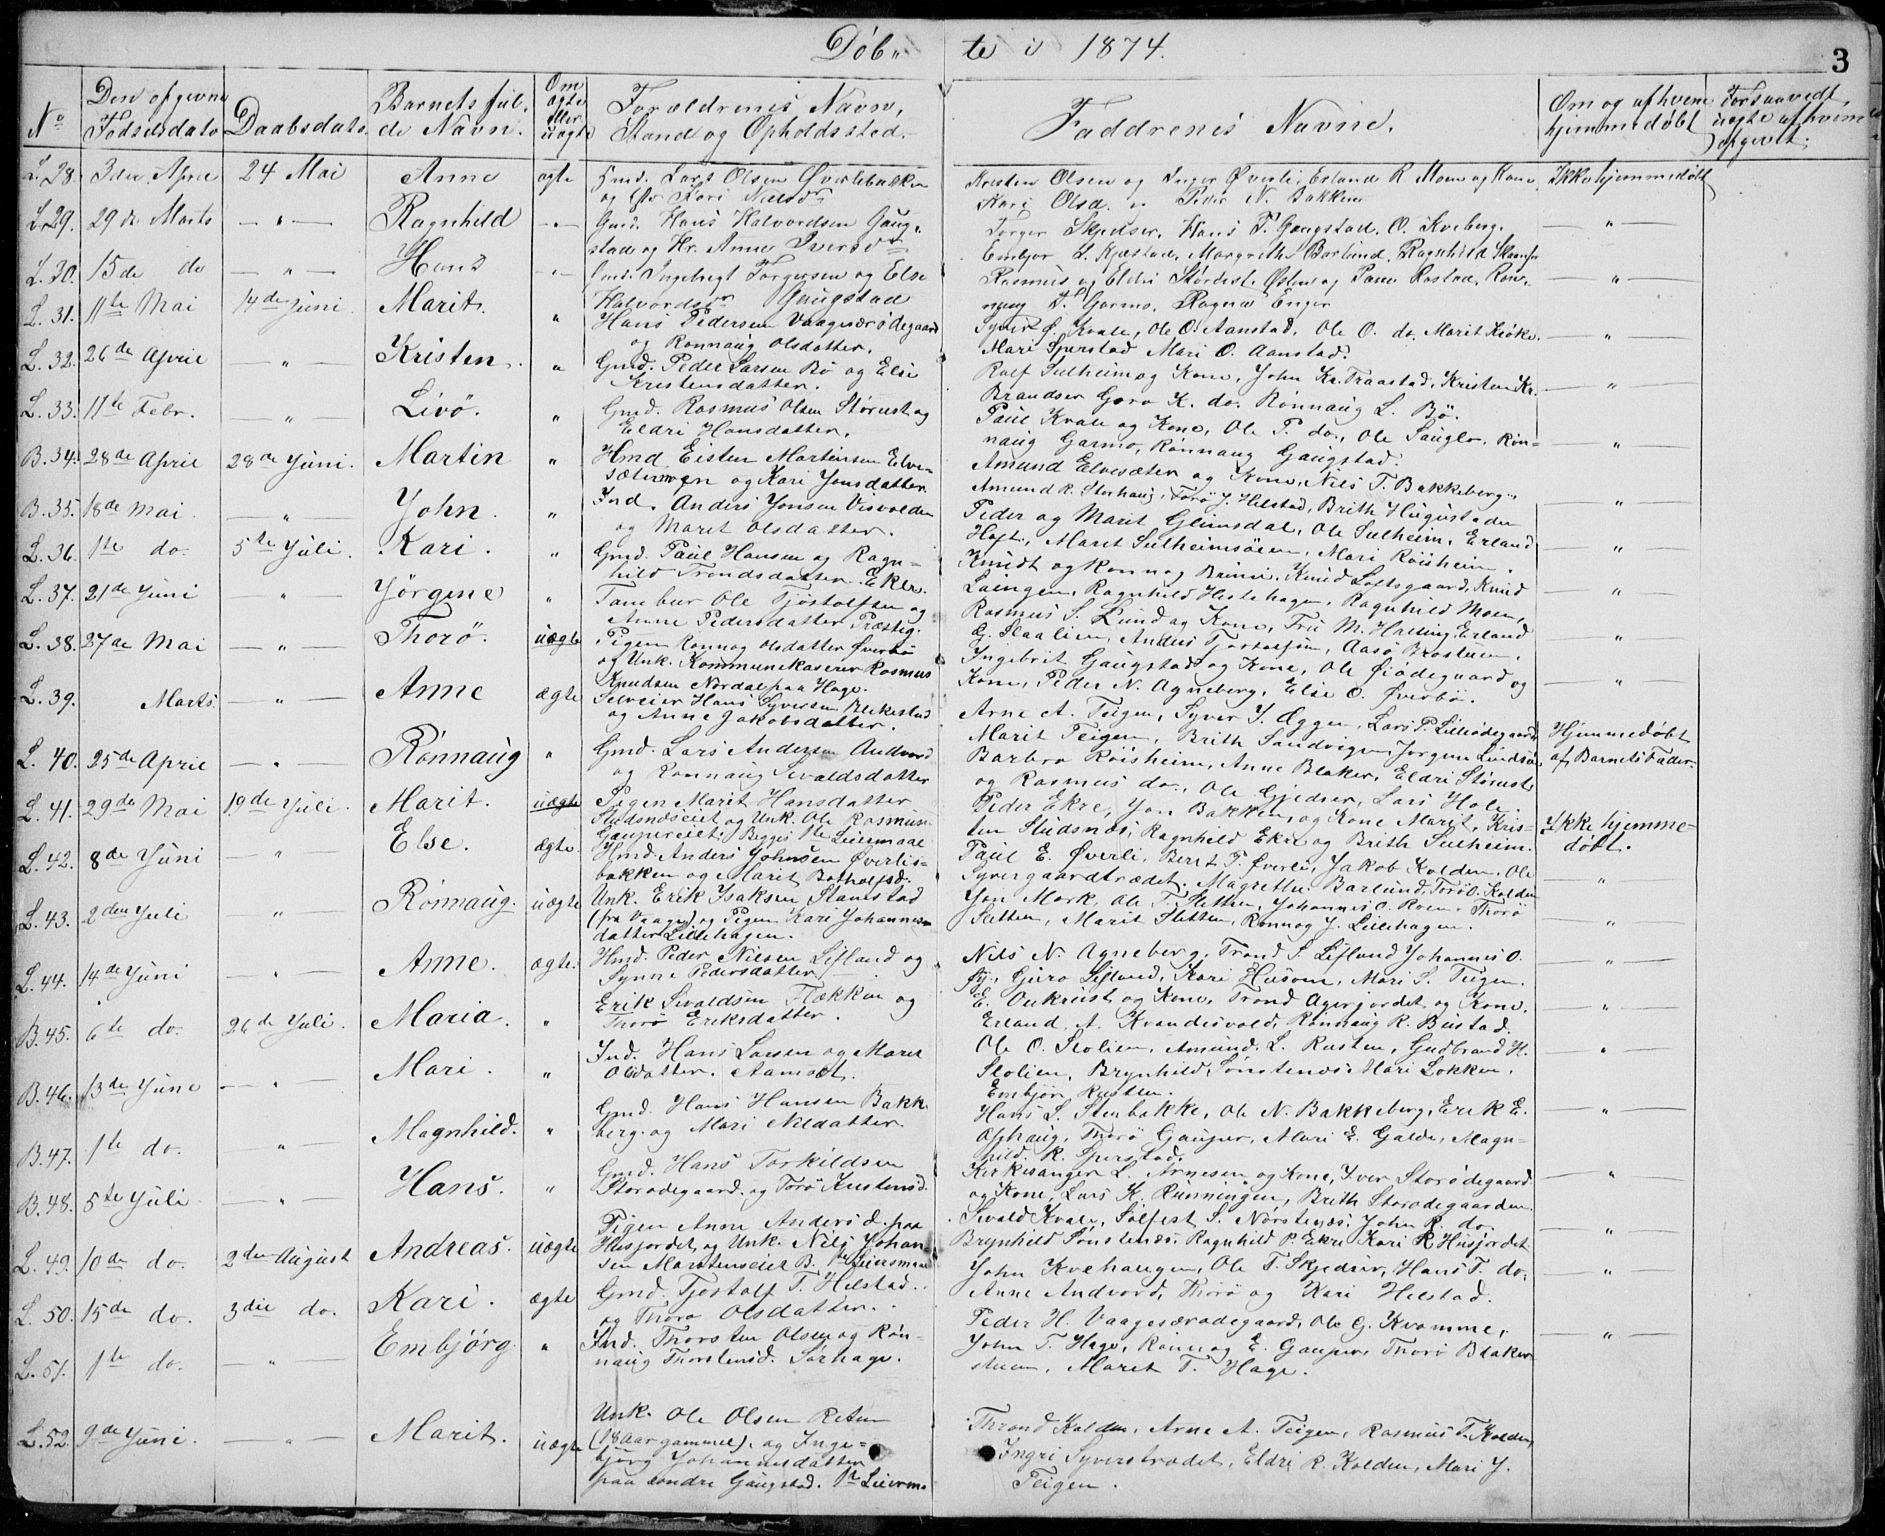 Döb„ te i 1874.
3
No
Den opgivne Födselsdato
Daabsdato.
Barnets fulde Navn.
Om ægte eller uægte
Forældrenes Navn, Stand og Opholdssted.
Faddrenes Navne.
Om og af hvem hjemmedöbt
Forsaavidt uægte af hvem opgivet:
L. 28. 3die April 24 Mai Anne ægte Gmd. Lars Olsen Øverlibakken
og Kari Nielsdr
Kresten Olsen og Inger Øverli, Erland R. Moen og Kone
Kari Olsd. Peder N. Bakken
Ikke hjemmedöbt
L. 29. 29de Marts — „ — Ragnhild — „ — Gmd. Hans Halvordsen Gaug-
stad og Anne Iversdr
Torger Skjedser, Hans T. Gaugstad, O. Kveberg.
Embjor L. Kjæstad, Margrethe Barlund, Ragnhild
— „ —
L. 30. 15de do — „ — Hans — „ — Ingebrigt Torgersen og Else
Halvordsdr Gaugstad
Rasmus og Eldri Störust, Östen og Rastad, Rön-
naug T. Garmo, Ragna Enger
— „ —
L. 31. 11te Mai 14de Juni Marit. „ Hans Pedersen Vaagesærödegaard
og Rönnaug Olsdatter.
Syver Ø. Kvale, Ole O. Aanstad, Ole O. do. Marit Kröke.
Mari Sperstad Mari O. Aanstad.
— „ —
L. 32. 26de April — „ — Kristen. „ Gmd. Peder Larsen Bö og Else
Kristensdatter.
Rolf Sulheim og Kone, John Kr. Traastad, Kristen Kr.
Brandser Goro K. do. Rönnaug L. Bö.
— „ —
L. 33. 11te Febr. — „ — Livö. „ Gmd. Rasmus Olsen Störust og
Eldri Hansdatter.
Paul Kvale og Kone, Ole P. do., Ole Sauglo, Rön-
naug Garmo, Rönnaug Gaugstad.
— „ —
B. 34. 28de April 28de Juni. Martin „ Hmd Eisten Martinsen Elve-
sæteren og Kari Jonsdatter
Amund Elvesæter og Kone, Nils T. Bakkeberg,
Amund R. Storhaug, Torö J. Hilstad, Brith Hugustaden
— „ —
B. 35. 18de Mai — „ — John. „ Ind. Anders Jonsen Visvolden
og Marit Olsdatter.
Peder og Marit Glimsdal, Ole Sulheim, Erland
Hoft, Marit Sulheimsöien, Mari Röisheim.
— „ —
L. 36. 1te do. 5te Juli. Kari. „ Gmd. Paul Hansen og Ragn-
hild Trondsdatter Ekre.
Knudt og Ronnog Brimi, Knud Loftsgaard, Knud
Laingen, Ragnhild Hestehagen, Ragnhild Moen,
— „ —
L. 37. 21de Juni — „ — Jörgine „ Tambur Ole Tjöstolfsen og
Anne Pedersdatter Præstg.
Rasmus S. Lund og Kone, Fru M. Halling, Erland
G. Slaalien, Anders Tjostolfsen, Aase Brosteen,
— „ —
L. 38. 27de Mai — „ — Thorö. uægte Pigen Ronnog Olsdatter Øverbö
og Unk. Kommunekaserer Rasmus
Knudsen Nordal paa Hage.
Ingebrit Gaugstad og Kone, Ole Öiödegaard og
Kone, Peder N. Agneberg, Else O. Øverbö.
— „ —
L. 39. Marts. — „ — Anne ægte Selveier Hans Syversen Blekestad
og Anne Jakobsdatter.
Arne A. Teigen, Syver J. Eggen, Lars P. Lilleödegaard
Marit Teigen, Brith Sandvigen, Jorgen Lindsö
Hjemmedöbt
af Barnets Fader.
L. 40. 25de April — „ — Rönnaug „ Gmd. Lars Andersen Andvord
og Ronnaug Sivaldsdatter
Barbro Röisheim, Anne Blaker, Eldri Störust
og Rasmus do., Ole Gjedser, Lars Hole.
L. 41. 29de Mai 19de Juli. Marit. uægte Pigen Marit Hansdatter
Studsnæseiet og Unk. Ole Rasmus-
Gaupereiet, Begges 1te Leiermaal
Peder Ekre, Jon Bakken, og Kone Marit, Kris-
ten Studsnæs, Ragnhild Ekre og Brith Sulheim.
Ikke hjemme-
döbt.
L. 42. 8de Juni — „ — Else. ægte. Hmd. Anders Johnsen Øverlis-
bakken og Marit Botholfsd.
Paul E. Øverli, Berit T. Øverli, Jakob Kolden, Ole
Syvergaardtrædet, Magrethe Barlund, Torö O. Kolden
— „ —
L. 43. 2den Juli „ Rönnaug. uægte Unk. Erik Isaksen Stamstad
(fra Vaage) og Pigen Kari Johannes-
datter Lillehagen.
Jon Mork, Ole T. Sletten, Johannes O. Roen, Thorö
Sletten, Marit Sletten, Ronnog J. Lillehagen.
„
L. 44. 14de Juni — „ — Anne. ægte. Hmd. Peder Nilsen Lifland og
Synne Pedersdatter
Nils N. Agneberg, Trond S. Lifland Johannes O.
Guro Lifland, Kari Husom, Mari S. Teigen.
— „ —
B. 45. 6te do. 26de Juli. Maria. „ Erik Sivaldsen Flækken og
Thorö Eriksdatter.
E. Aukrust og Kone, Trond Agerjordet og Kone.
Erland A. Kvandesvold, Rönnaug R. Bustad.
— „ —
B. 46. 13de June — „ — Mari. „ Ind. Hans Larsen og Marit
Olsdatter. Aamsæt.
Ole O. Slolien, Amund L. Rusten, Gudbrand H.
Slolien, Brynhild Sönstenæs, Mari Lokken,
Embjör Rusten.
— „ —
B. 47. 1te do. „ — Magnhild. „ Gmd. Hans Hansen Bakke
berg. og Mari Olsdatter.
Hans L. Stenbakke, Ole N. Bakkeberg, Erik E.
Ophaug, Thorö Gauper, Mari E. Galde, Magn-
hild R. Sperstad.
— „ —
B. 48. 5te Juli — „ — Hans. „ Gmd. Hans Torkildsen
Storödegaard. og Torö Kristensd.
Kirkesanger L. Arnesen og Kone, Iver Storödegaard
og Kone, Lars K. Runningen, Brith Storödegaarden
— „ —
L. 49. 10de do. 2den August Andreas. uægte Pigen Anne Andersd. paa
Husjordet og Unk. Nils Johan
sen Marstenseiet B. 1te Leiersmaal
Sivald Kvale, Sölfest S. Norstenæs, John R. do.
Brynhild Sönstenæs, Ragnhild P. Ekre Kari R. Husjordet
— „ —
L. 50. 15de do. 3die do. Kari. ægte Gmd. Tjostolf T. Hilstad.
og Thoro Olsdatter.
John Kvehaugen, Ole T. Skjedser, Hans T. do.
Anne Andvord, Thorö og Kari Hilstad.
— „ —
L. 51. 1te do. — „ — Embjörg „ Ind. Thorsten Olsen og Rön-
naug Thorstensd. Sörhage.
Peder H. Vaagesærödegaard, Ole G. Kvamme,
John T. Hage, Ronnog E. Gauper, Thorö Blaker-
stuen, Marit T. Hage.
— „ —
L. 52. 9de Juni. — „ — Marit. uægte Unk. Ole Olsen Reten
(18 Aar gammel), og Inge-
björg Johannesdatter
paa söndre Gaugstad. 1te Leierm.
Thrond Kolden, Arne A. Teigen, Rasmus T. Kolden,
Ingri Syverstrædet, Eldri R. Kolden, Mari J.
Teigen.